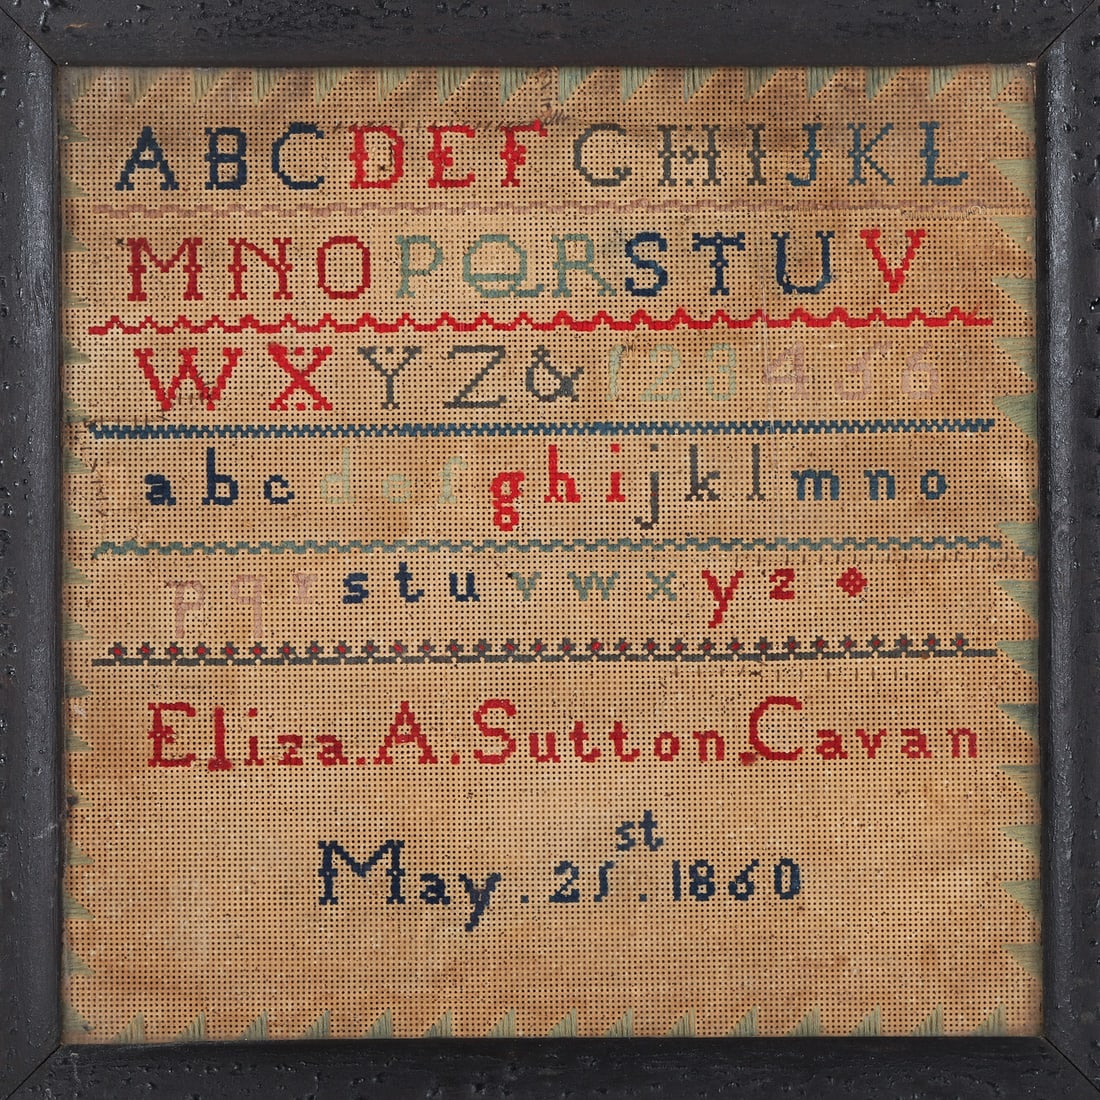 ABCDEFGHIJKL
MNOPQRSTUV
WXYZ&123456
abcdefghijklmno
pqrstuvwxyz
Eliza.A.Sutton.Cavan
May.21st.1860